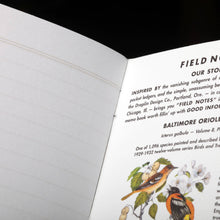 FIELD N
OUR STO
INSPIRED BY the vanishing subgenre of
pocket ledgers, and the simple, unassuming be
the Draplin Design Co., Portland, Ore. — in co
Chicago, Ill. — brings you "FIELD NOTES"
memo book worth fillin' up with GOOD INFO
BALTIMORE ORIOLE
Icterus galbula — Volume 2, P
One of 1,086 species painted and described
1929-1932 twelve volume series Birds and Tr